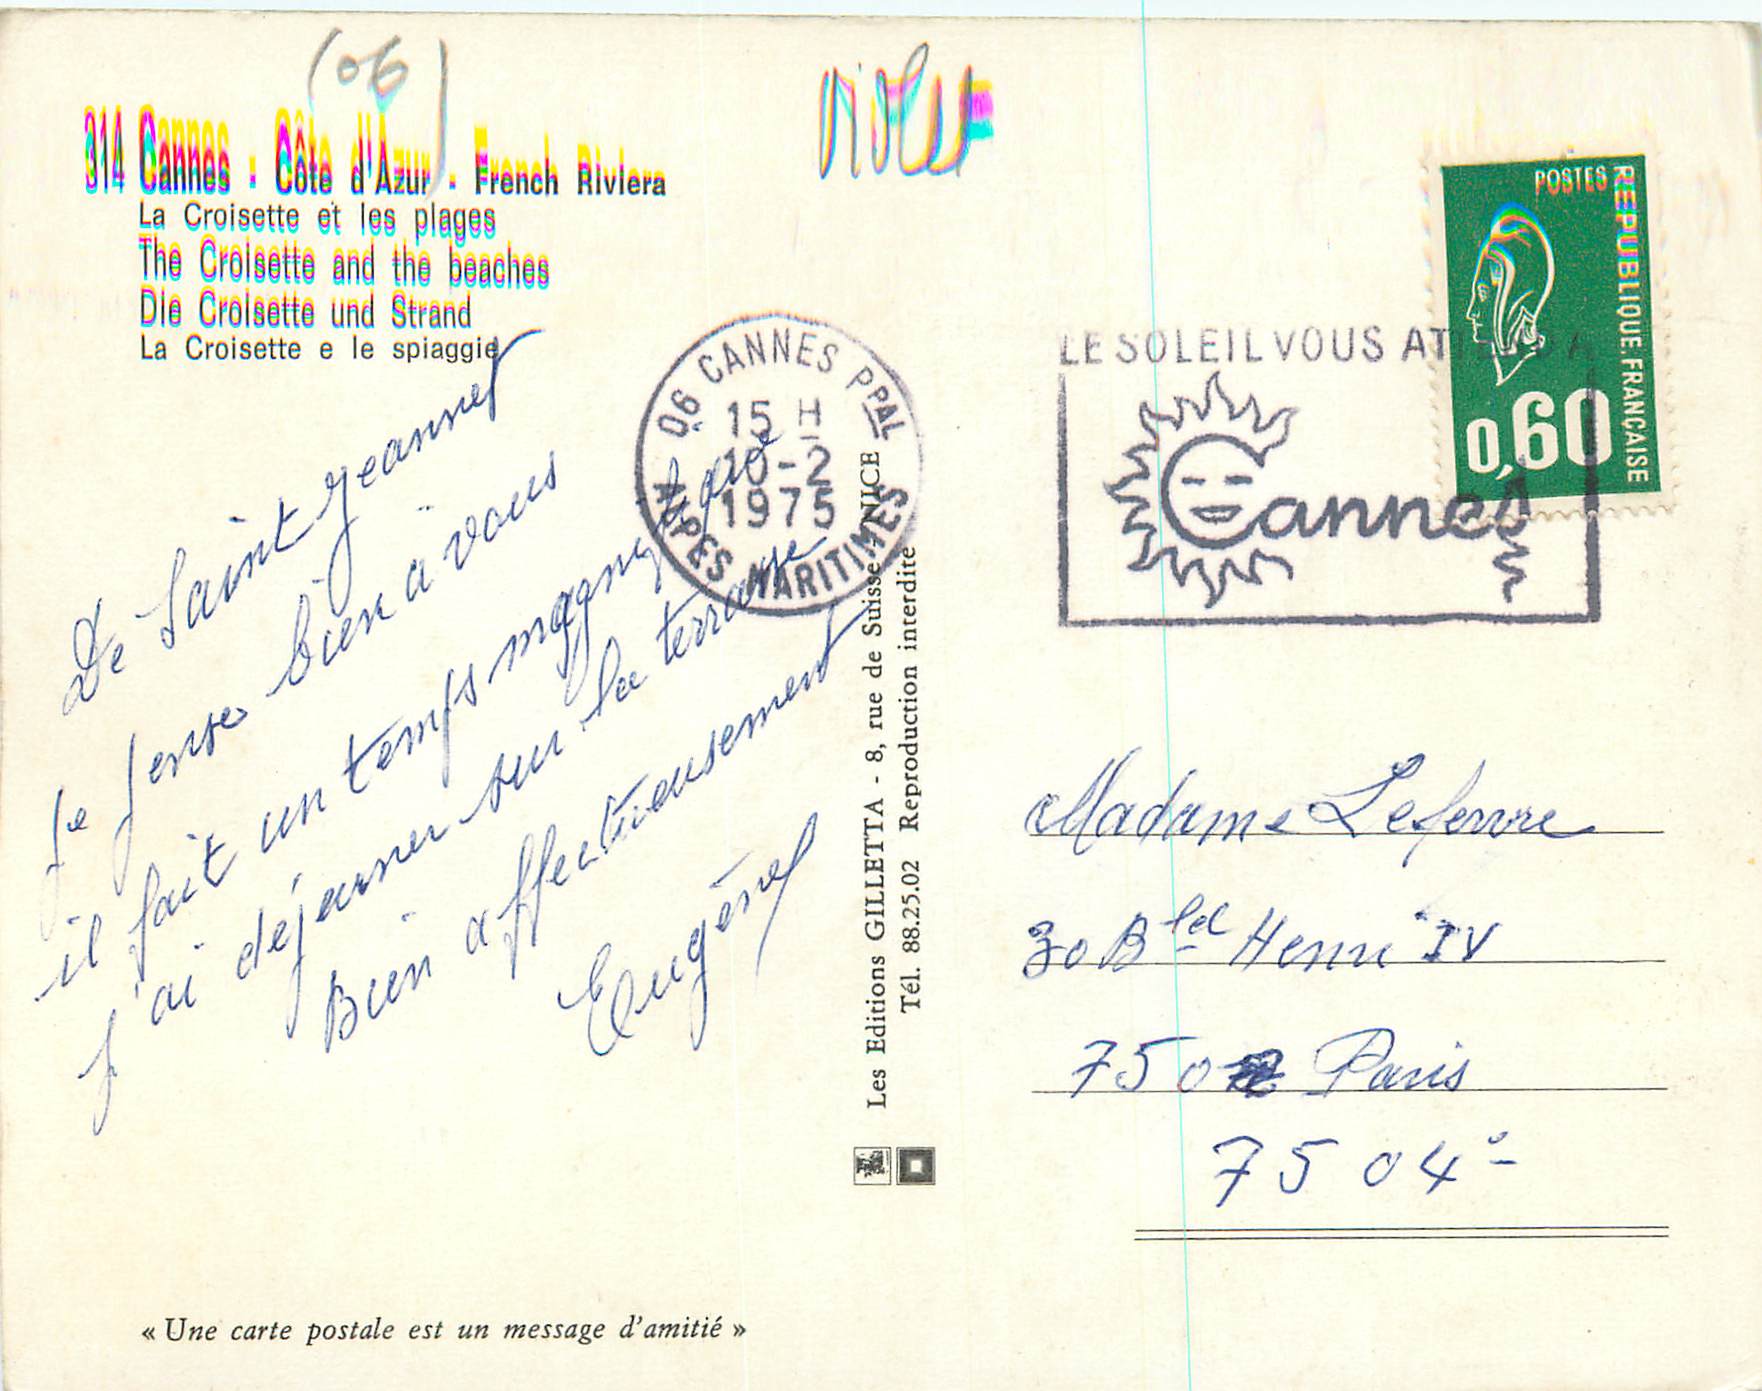 (06)
314 Cannes - Côte d'Azur - French Riviera
La Croisette et les plages
The Croisette and the beaches
Die Croisette und Strand
La Croisette e le spiaggie
De Saint Jeannet
Je pense bien à vous
il fait un temps magnifique
j'ai déjeuner sur la terrasse
Bien affectieusement
Eugène
« Une carte postale est un message d'amitié »
06 CANNES PPAL
15 H
10-2
1975
ALPES MARITIMES
Les Editions GILLETTA - 8, rue de Suisse - NICE
Tél. 88.25.02 Reproduction interdite
LE SOLEIL VOUS ATTEND A
Cannes
POSTES
REPUBLIQUE.FRANÇAISE
0,60
Madame Lefevre
30 Bled Henri IV
750 Paris
75 04